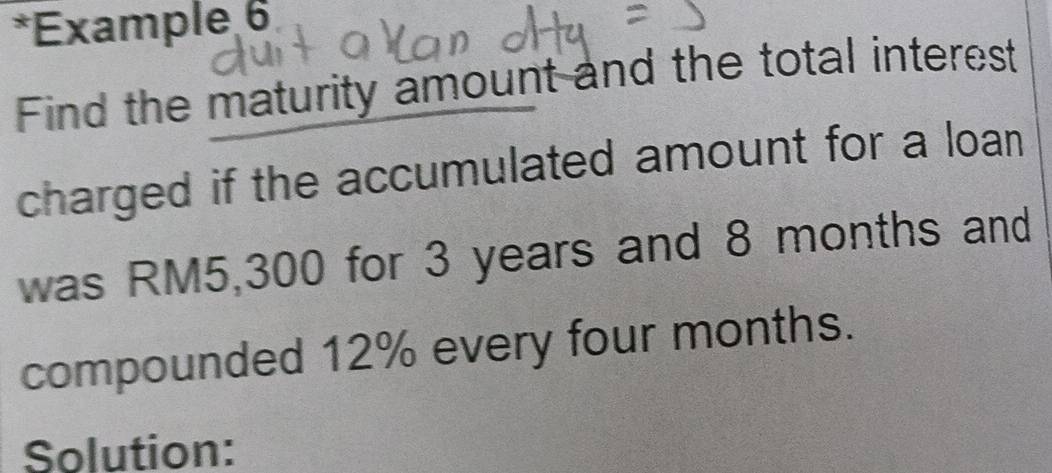 *Example 6
duit akan dty = S
Find the maturity amount and the total interest
charged if the accumulated amount for a loan
was RM5,300 for 3 years and 8 months and
compounded 12% every four months.
Solution: